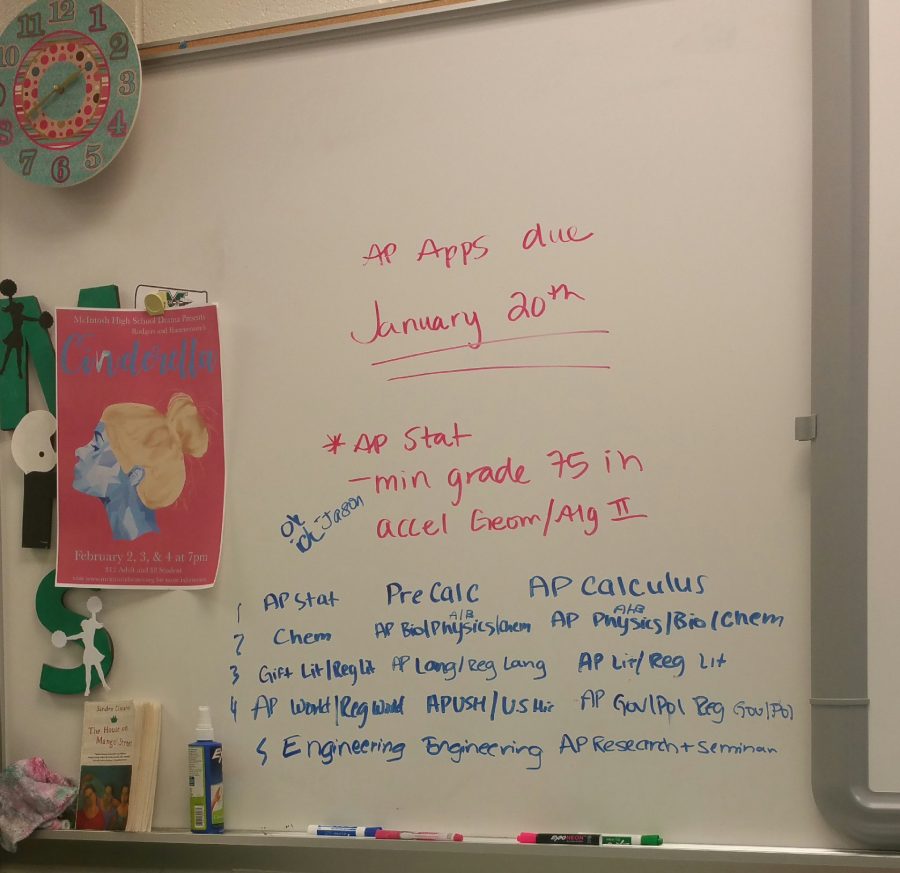 12
11 1
10 2
3
8 4
7 5
6
AP Apps due
January 20th
McIntosh High School Drama Presents
Rodgers and Hammerstein's
Cinderella
February 2, 3, & 4 at 7pm
* AP Stat
-min grade 75 in
accel Geom/Alg II
-Jason
1 AP Stat PreCalc AP Calculus
A/B A/B
2 Chem AP Bio/Physics/Chem AP Physics/Bio/Chem
3 Gift Lit/Reg Lit AP Lang/Reg Lang AP Lit/Reg Lit
4 AP World/Reg World APUSH/US His AP Gov/Pol Reg Gov/Pol
5 Engineering Engineering AP Research + Seminar
The House on
Mango Street
EXPO NEON